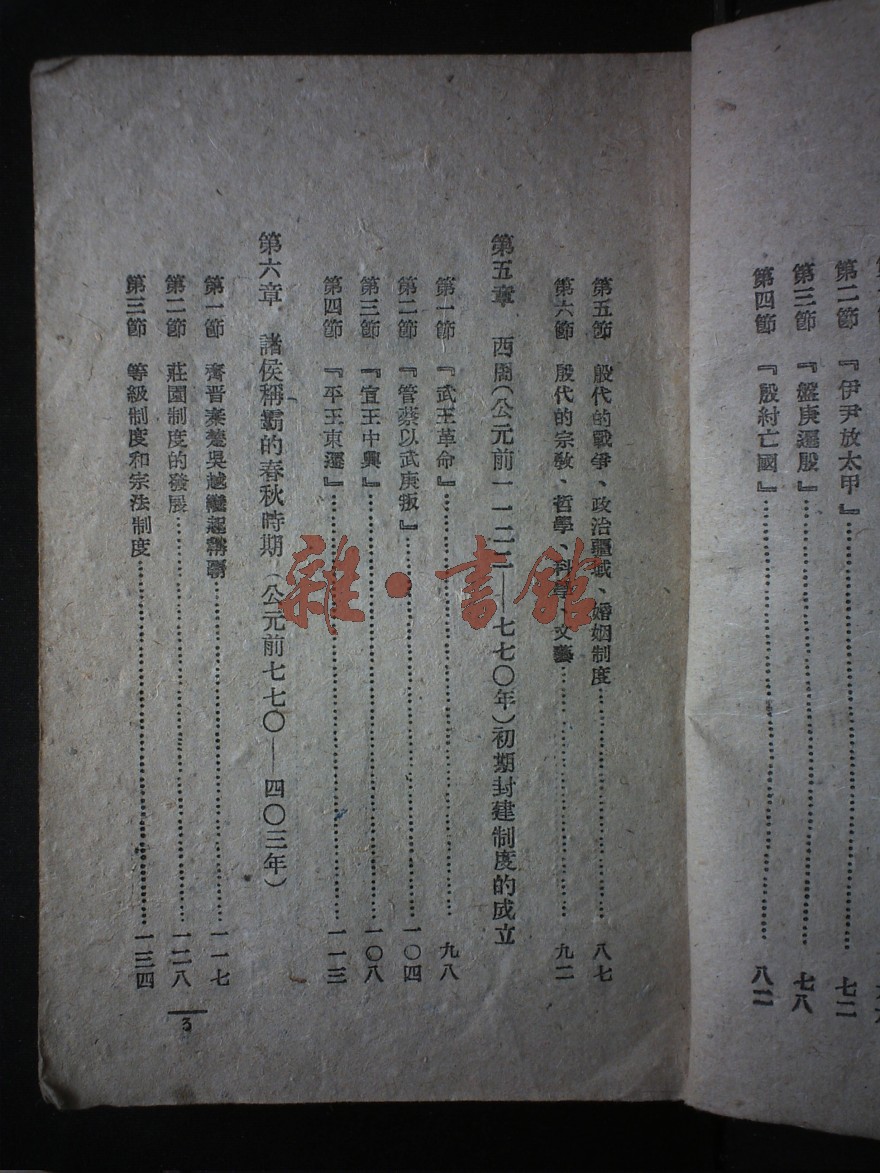 第二節　『伊尹放太甲』……七二
第三節　『盤庚遷殷』……七八
第四節　『殷紂亡國』……八二
第五節　殷代的戰爭、政治疆域、婚姻制度……八七
第六節　殷代的宗教、哲學、科學、文藝……九二
第五章　西周(公元前一一二二—七七〇年)初期封建制度的成立
第一節　『武王革命』……九八
第二節　『管蔡以武庚叛』……一〇四
第三節　『宣王中興』……一〇八
第四節　『平王東遷』……一一三
第六章　諸侯稱霸的春秋時期(公元前七七〇—四〇三年)
第一節　齊晉秦楚吳越繼起稱霸……一一七
第二節　莊園制度的發展……一二八
第三節　等級制度和宗法制度……一三四
3
雜·書館